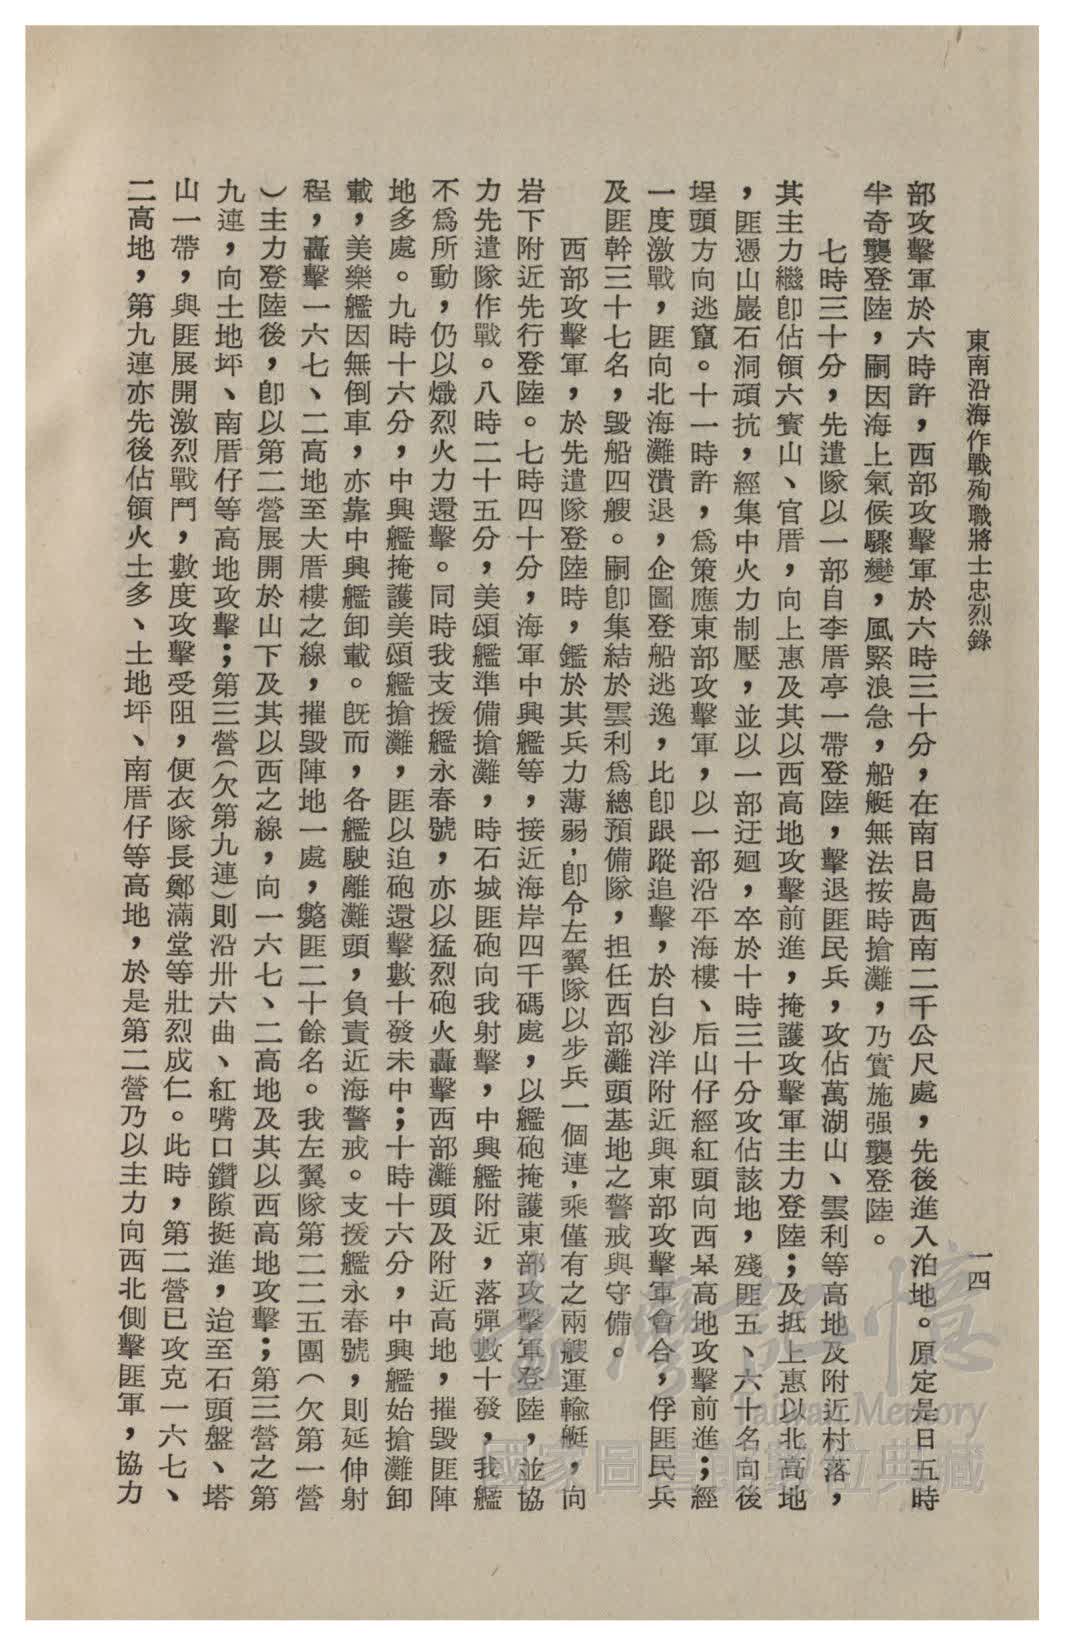 東南沿海作戰殉職將士忠烈錄
一四
部攻擊軍於六時許，西部攻擊軍於六時三十分，在南日島西南二千公尺處，先後進入泊地。原定是日五時
半奇襲登陸，嗣因海上氣候驟變，風緊浪急，船艇無法按時搶灘，乃實施强襲登陸。
七時三十分，先遣隊以一部自李厝亭一帶登陸，擊退匪民兵，攻佔萬湖山、雲利等高地及附近村落，
其主力繼卽佔領六賓山、官厝，向上惠及其以西高地攻擊前進，掩護攻擊軍主力登陸；及抵上惠以北高地
，匪憑山巖石洞頑抗，經集中火力制壓，並以一部迂廻，卒於十時三十分攻佔該地，殘匪五、六十名向後
埕頭方向逃竄。十一時許，爲策應東部攻擊軍，以一部沿平海樓、后山仔經紅頭向西杲高地攻擊前進；經
一度激戰，匪向北海灘潰退，企圖登船逃逸，比卽跟蹤追擊，於白沙洋附近與東部攻擊軍會合，俘匪民兵
及匪幹三十七名，毀船四艘。嗣卽集結於雲利爲總預備隊，担任西部灘頭基地之警戒與守備。
西部攻擊軍，於先遣隊登陸時，鑑於其兵力薄弱，卽令左翼隊以步兵一個連，乘僅有之兩艘運輸艇，向
岩下附近先行登陸。七時四十分，海軍中興艦等，接近海岸四千碼處，以艦砲掩護東部攻擊軍登陸，並協
力先遣隊作戰。八時二十五分，美頌艦準備搶灘，時石城匪砲向我射擊，中興艦附近，落彈數十發，我艦
不爲所動，仍以熾烈火力還擊。同時我支援艦永春號，亦以猛烈砲火轟擊西部灘頭及附近高地，摧毀匪陣
地多處。九時十六分，中興艦掩護美頌艦搶灘，匪以迫砲還擊數十發未中；十時十六分，中興艦始搶灘卸
載，美樂艦因無倒車，亦靠中興艦卸載。旣而，各艦駛離灘頭，負責近海警戒。支援艦永春號，則延伸射
程，轟擊一六七、二高地至大厝樓之線，摧毀陣地一處，斃匪二十餘名。我左翼隊第二二五團（欠第一營
）主力登陸後，卽以第二營展開於山下及其以西之線，向一六七、二高地及其以西高地攻擊；第三營之第
九連，向土地坪、南厝仔等高地攻擊；第三營（欠第九連）則沿卅六曲、紅嘴口鑽隙挺進，迨至石頭盤、塔
山一帶，與匪展開激烈戰鬥，數度攻擊受阻，便衣隊長鄭滿堂等壯烈成仁。此時，第二營已攻克一六七、
二高地，第九連亦先後佔領火土多、土地坪、南厝仔等高地，於是第二營乃以主力向西北側擊匪軍，協力
臺灣記憶
Taiwan Memory
國家圖書館數位典藏